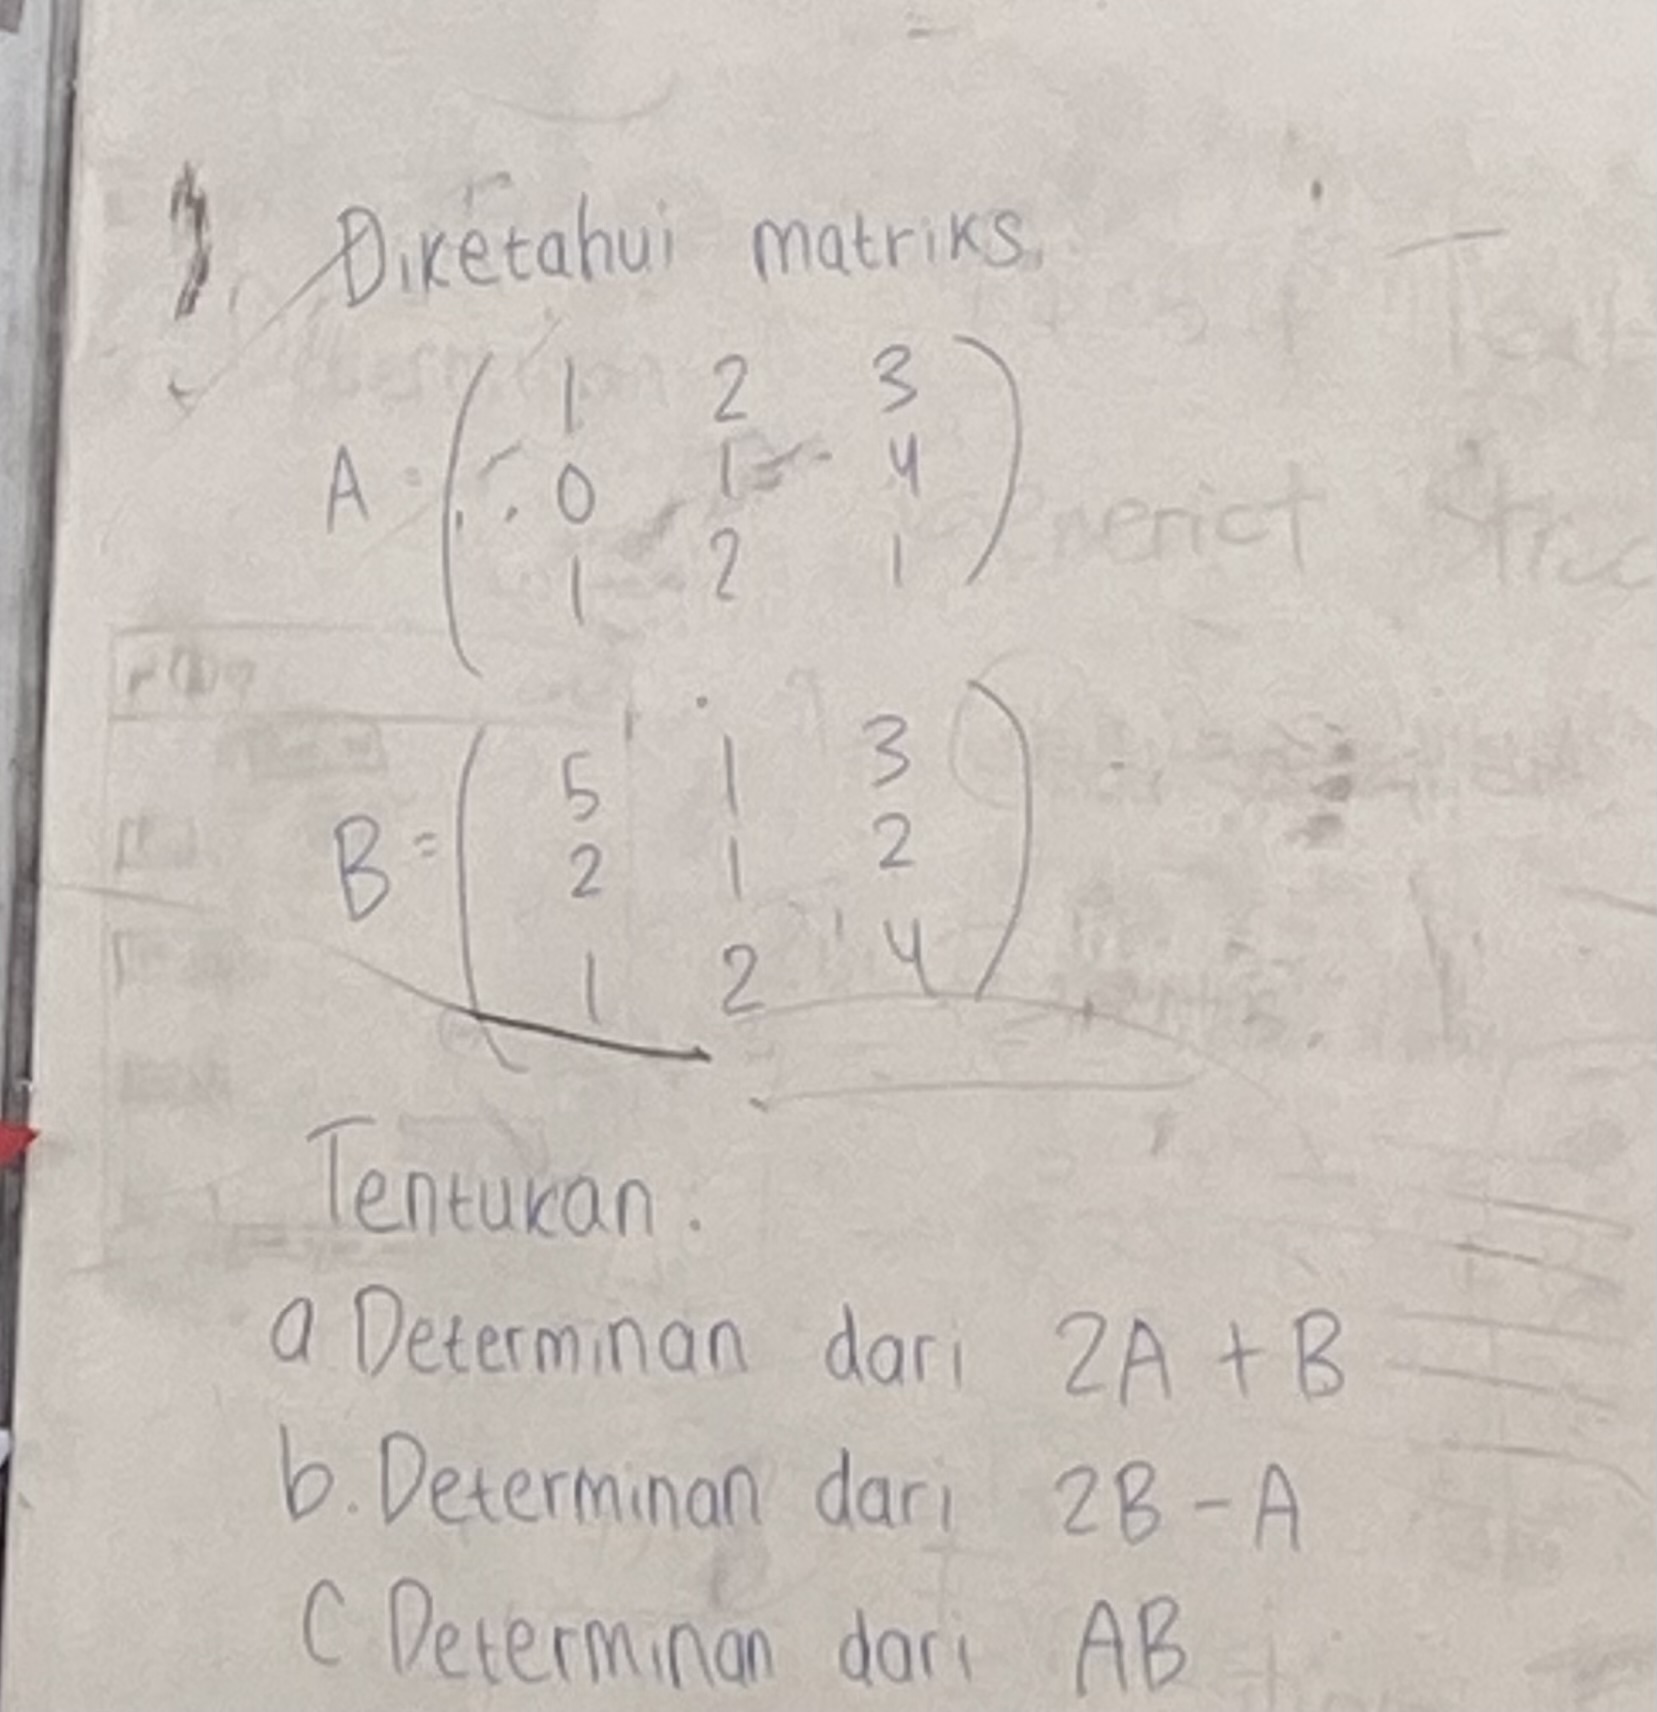 1. Diketahui matriks
1 2 3
A = 0 1 4
1 2 1
5 1 3
B = 2 1 2
1 2 4
Tentukan.
a Determinan dari 2A + B
b. Determinan dari 2B - A
C Determinan dari AB